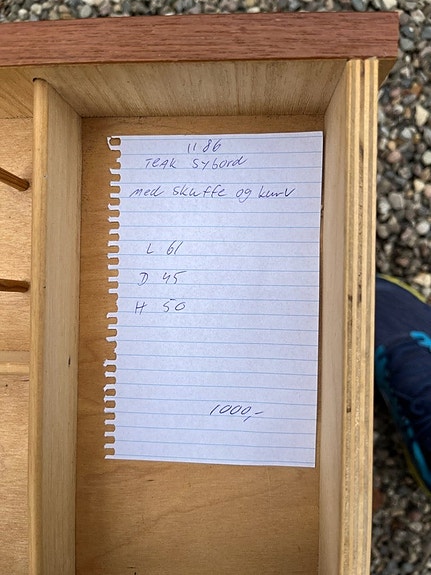 1186
Teak sybord
med skuffe og kurv
L 61
D 45
H 50
1000,-